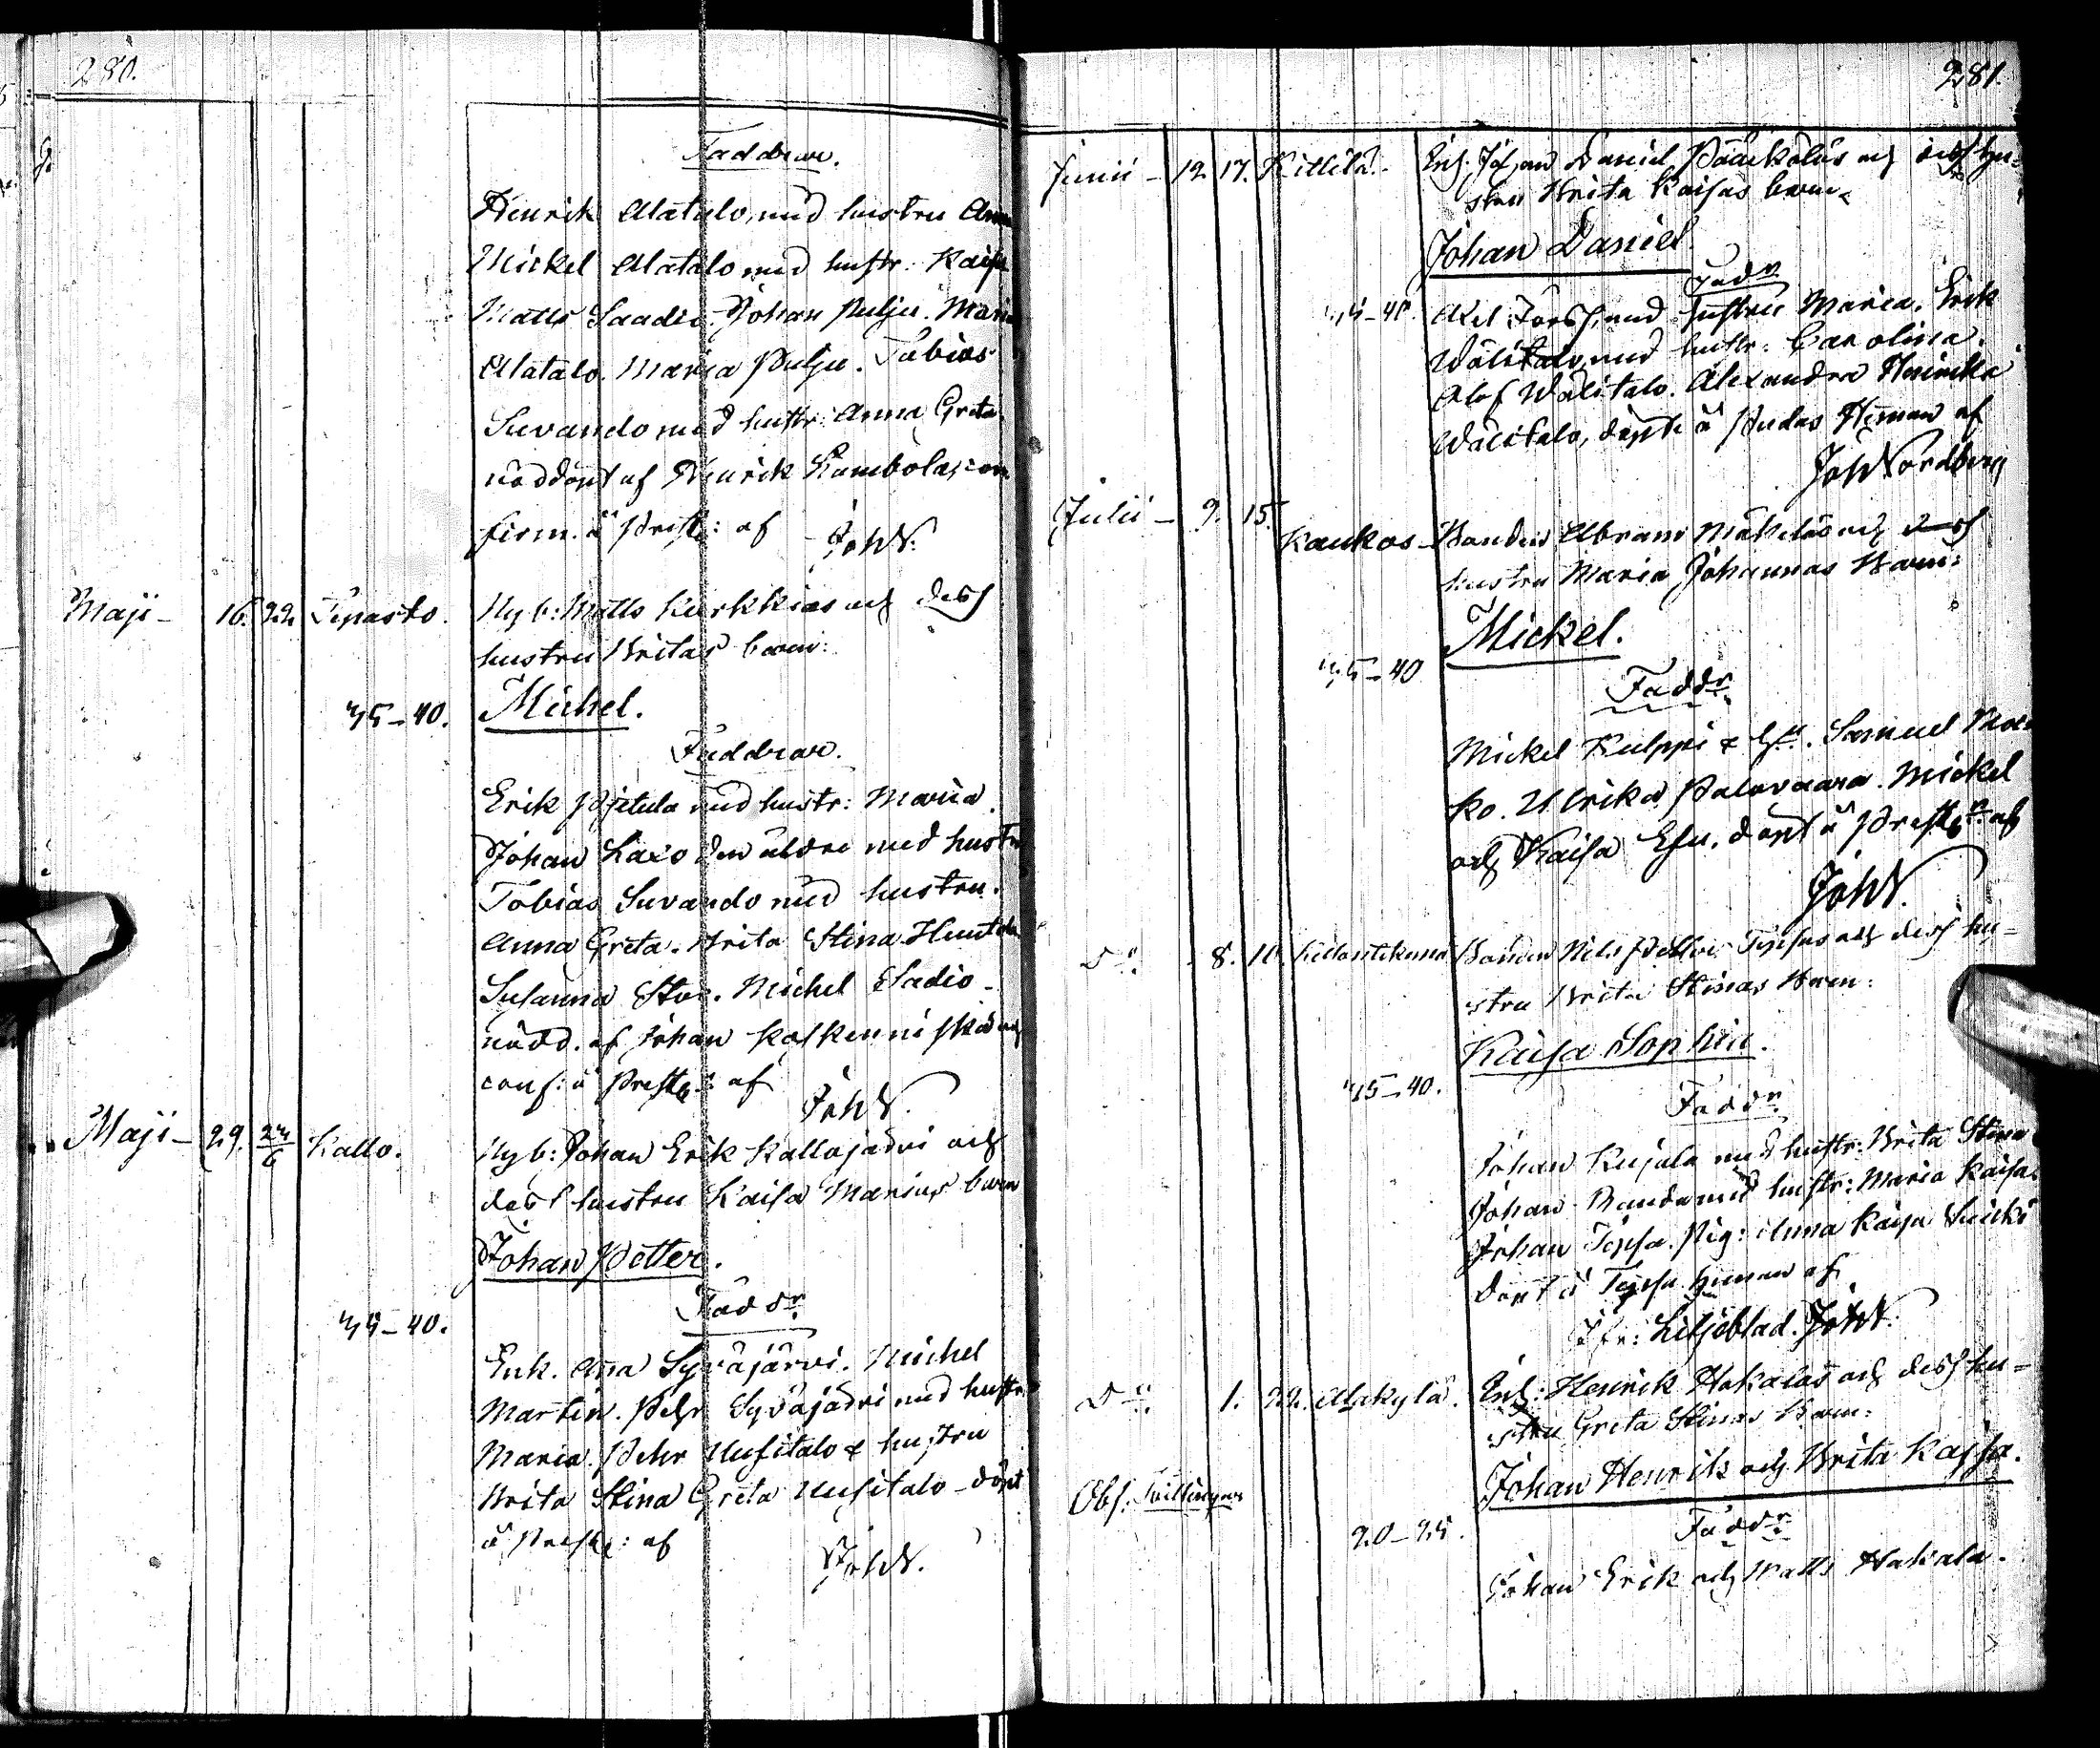 280.
Faddrar.
Henrik Alatalo, med hustru Anna
Mickel Alatalo med hustr: Kaisa
Matts Saadio. Johan Pulju. Maria
Alatalo. Maria Pulju. Tobias
Suvando med hustr: Anna Greta.
nöddöpt af Henrik con
firm. å Prestg: af JohN.
Maji - 16. 22. Tepasto. Nyb: Matts Kurkkios och dess
hustru Britas barn:
35-40. Michel.
Faddrar.
Erik Pjetula med hustr: Maria.
Johan Laxo den äldre med hustru
Tobias Suvando med hustru.
Anna Greta. Brita Stina
Susanna Michel Sadio -
nödd. af Johan
conf: å Prestg: af JohN.
Maji - 29. 24/6 Kallo. Nyb: Johan Erik Kallojärvi och
dess hustru Kaisa Marias barn
Johan Petter.
35-40. Faddr
Enk. Anna Syväjärvi. Michel
Martin. Pehr Syväjärvi med hustr
Maria. Pehr Uusitalo & hustru
Brita Stina Greta Uusitalo - döpt
å Prestg: af JohN.
281.
Junii - 12. 17. Kittilä. Johan Daniel Pääkköläs och dess hu-
stru Brita Kaisas barn
Johan Daniel.
Fadr
35-40. Axel med hustru Maria. Erik
Wälitalo, med hustr: Carolina.
Olof Wälitalo. Alexandra Henrika
Wälitalo, döpt å Pudas Heman af
JohNordberg
Julii - 9. 15. Kaukos - Bonden Abram Mäkeläs och dess
hustru Maria Johannas Barn:
Mickel.
35-40 Faddr
Mickel Kulppi & Samuel
ko. Ulrika Palovaara. Mickel
och Kaisa döpt å Prestg af
JohN.
Do. 8. 10. Bonden Nils Petter Tepsas och dess hu-
stru Brita Stinas Barn:
Kaisa Sophia.
35-40. Faddr
Johan Kujala med hustr: Brita Stina
Johan med hustr: Maria Kaisa.
Johan Tepsa. Pig: Anna Kaisa
Döpt å Tepsa heman af
Liljeblad. JohN.
Do. 1. 22. Alakylä. Henrik Hakalas och dess hu-
stru Greta Stinas Barn:
Johan Henrik och Brita Kajsa.
Obs. Tvillingar
20-25. Faddr
Johan Erik och Matts Hakala.